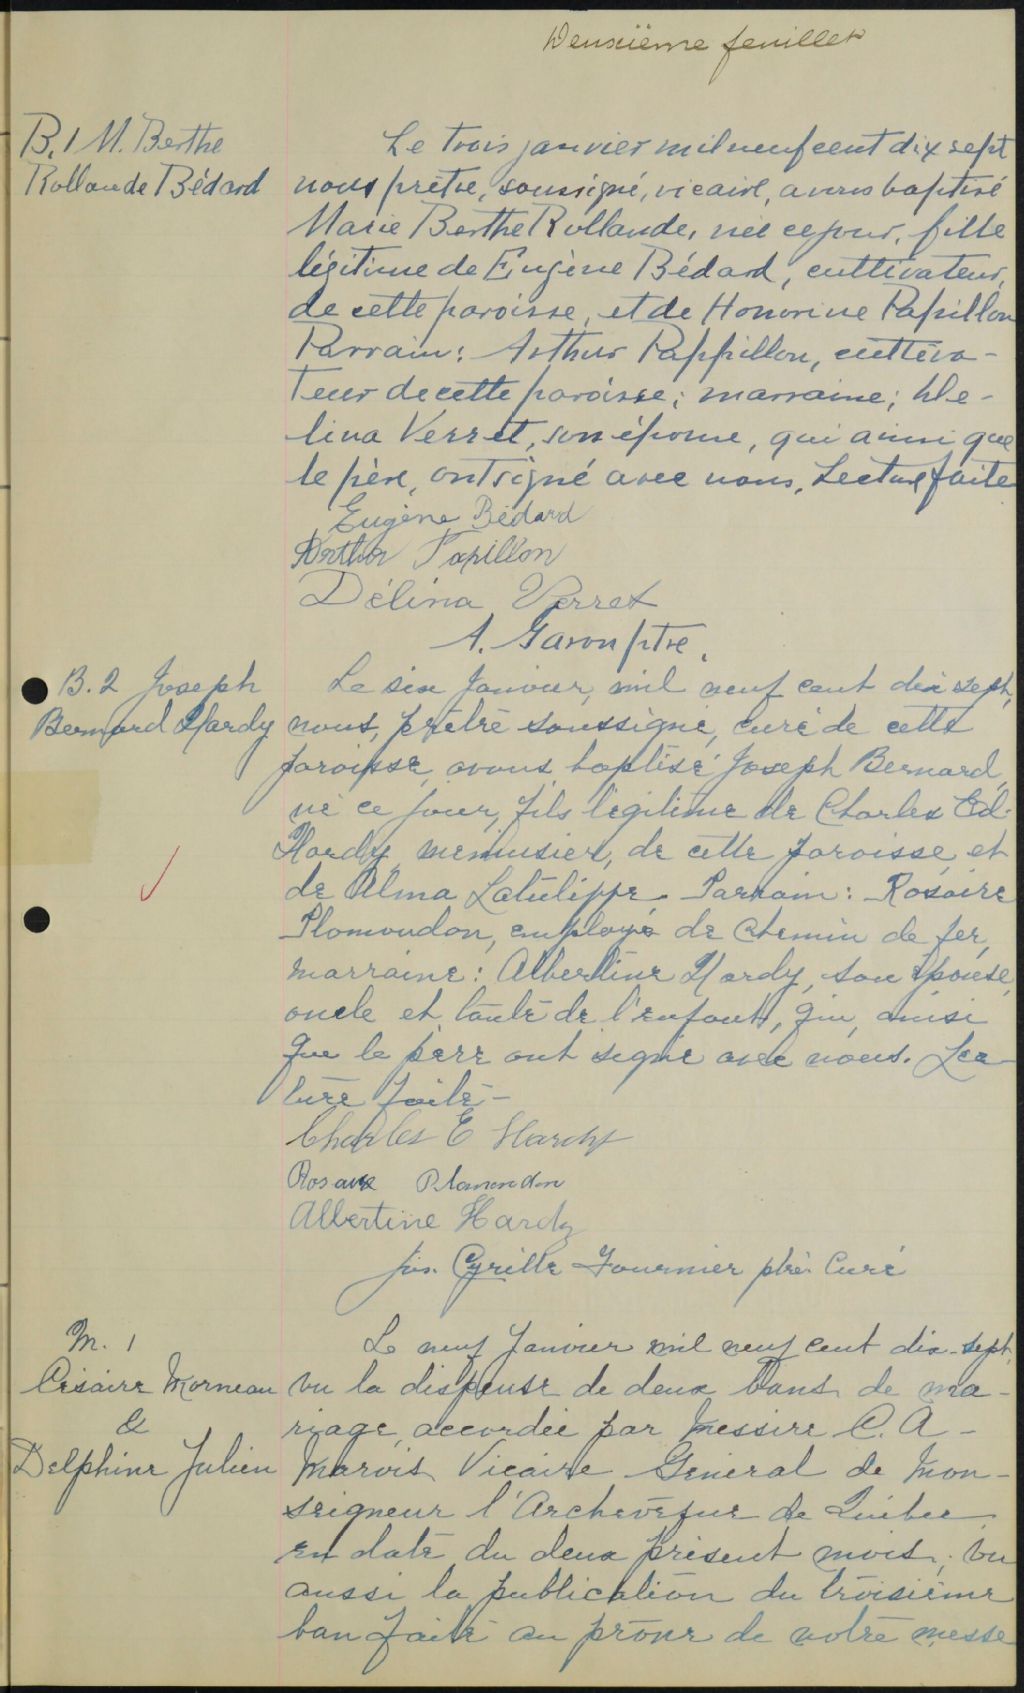 Deuxième feuillet
B. 1 M. Berthe
Rollande Bédard
Le trois janvier mil neuf cent dix sept
nous prêtre, soussigné, vicaire, avons baptisé
Marie Berthe Rollande, née ce jour, fille
légitime de Eugène Bédard, cultivateur,
de cette paroisse, et de Honorine Papillon
Parrain: Arthur Pappillon, cultiva-
teur de cette paroisse; marraine; Dé-
lina Verret, son épouse, qui ainsi que
le père, ont signé avec nous, Lecture faite
Eugène Bédard
Arthur Papillon
Délina Verret
A. Garon ptre.
B. 2 Joseph
Bernard Hardy
Le six Janvier, mil neuf cent dix sept,
nous, prêtre soussigné, curé de cette
paroisse, avons baptisé Joseph Bernard,
né ce jour, fils légitime de Charles Ed.
Hardy, menuisier, de cette paroisse, et
de Alma Latulippe. Parrain: Rosaire
Plomondon, employé de chemin de fer,
marraine: Albertine Hardy, son épouse,
oncle et tante de l'enfant, qui, ainsi
que le père ont signé avec nous. Lec-
ture faite -
Charles E Hardy
Rosaire Plamondon
Albertine Hardy
Jos. Cyrille Fournier ptre Curé
M. 1
Césaire Morneau
&
Delphine Julien
Le neuf Janvier mil neuf cent dix-sept,
vu la dispense de deux bans de ma-
riage, accordée par Messire C. A -
Marois Vicaire Général de Mon-
seigneur l'Archevêque de Québec
en date du deux présent mois; vu
aussi la publication du troisième
ban faite au prône de notre messe